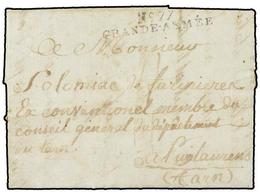 No 17
GRANDE-ARMÉE
a Monsieur
de
Ex conventionel membre du
conseil général du département
du tarn
a Puylaurens
(Tarn)